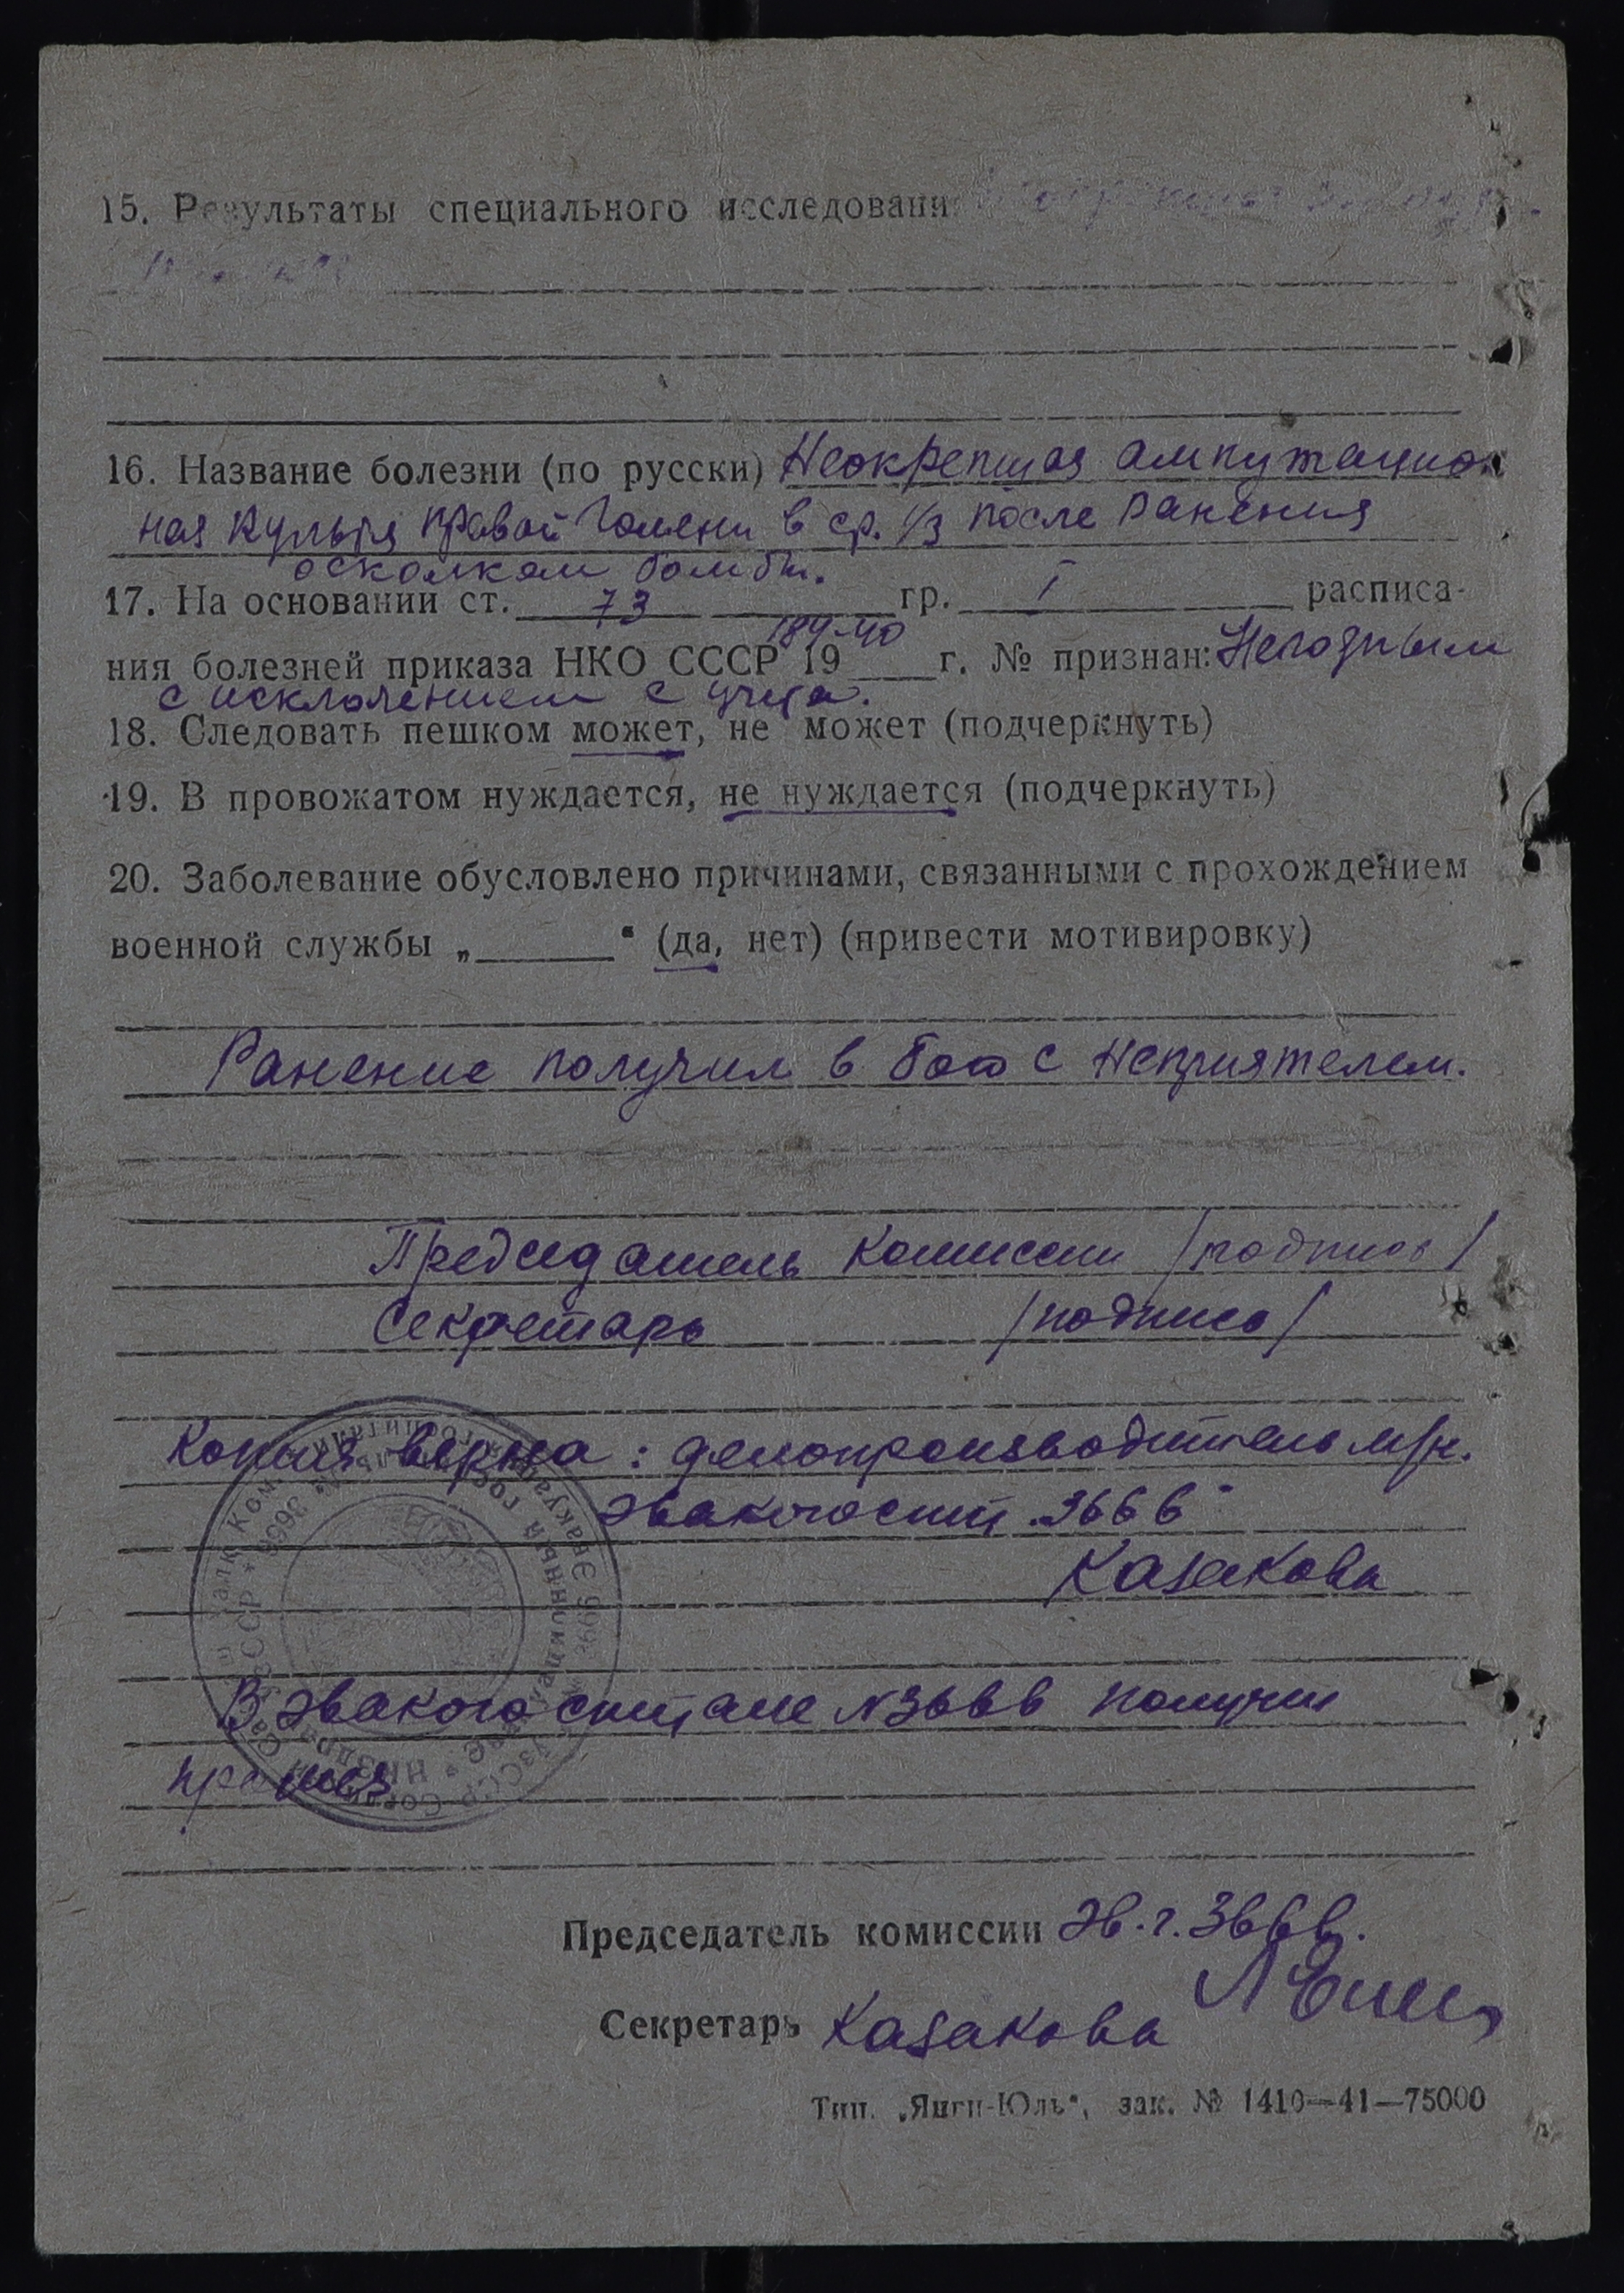 15. Результаты специального исследовани
16. Название болезни (по русски) Неокрепшая ампутацион
ная культя правой голени в ср. 1/3 после ранения
осколком бомбы.
17. На основании ст. 73 гр. I расписа-
184-40
ния болезней приказа НКО СССР 19 г. № признан: Негодным
с исключением с учета.
18. Следовать пешком может, не может (подчеркнуть)
19. В провожатом нуждается, не нуждается (подчеркнуть)
20. Заболевание обусловлено причинами, связанными с прохождением
военной службы „ “ (да, нет) (привести мотивировку)
Ранение получил в бою с неприятелем.
Председатель комиссии /подпись/
Секретарь /подпись/
Копия верна: делопроизводитель
эвакогосп. 3666
Казакова
В эвакогоспитале N3666 получил
протез
Председатель комиссии эв.г. 3666.
Секретарь Казакова
Тип. „Янги-Юль“, зак. № 1410—41—75000